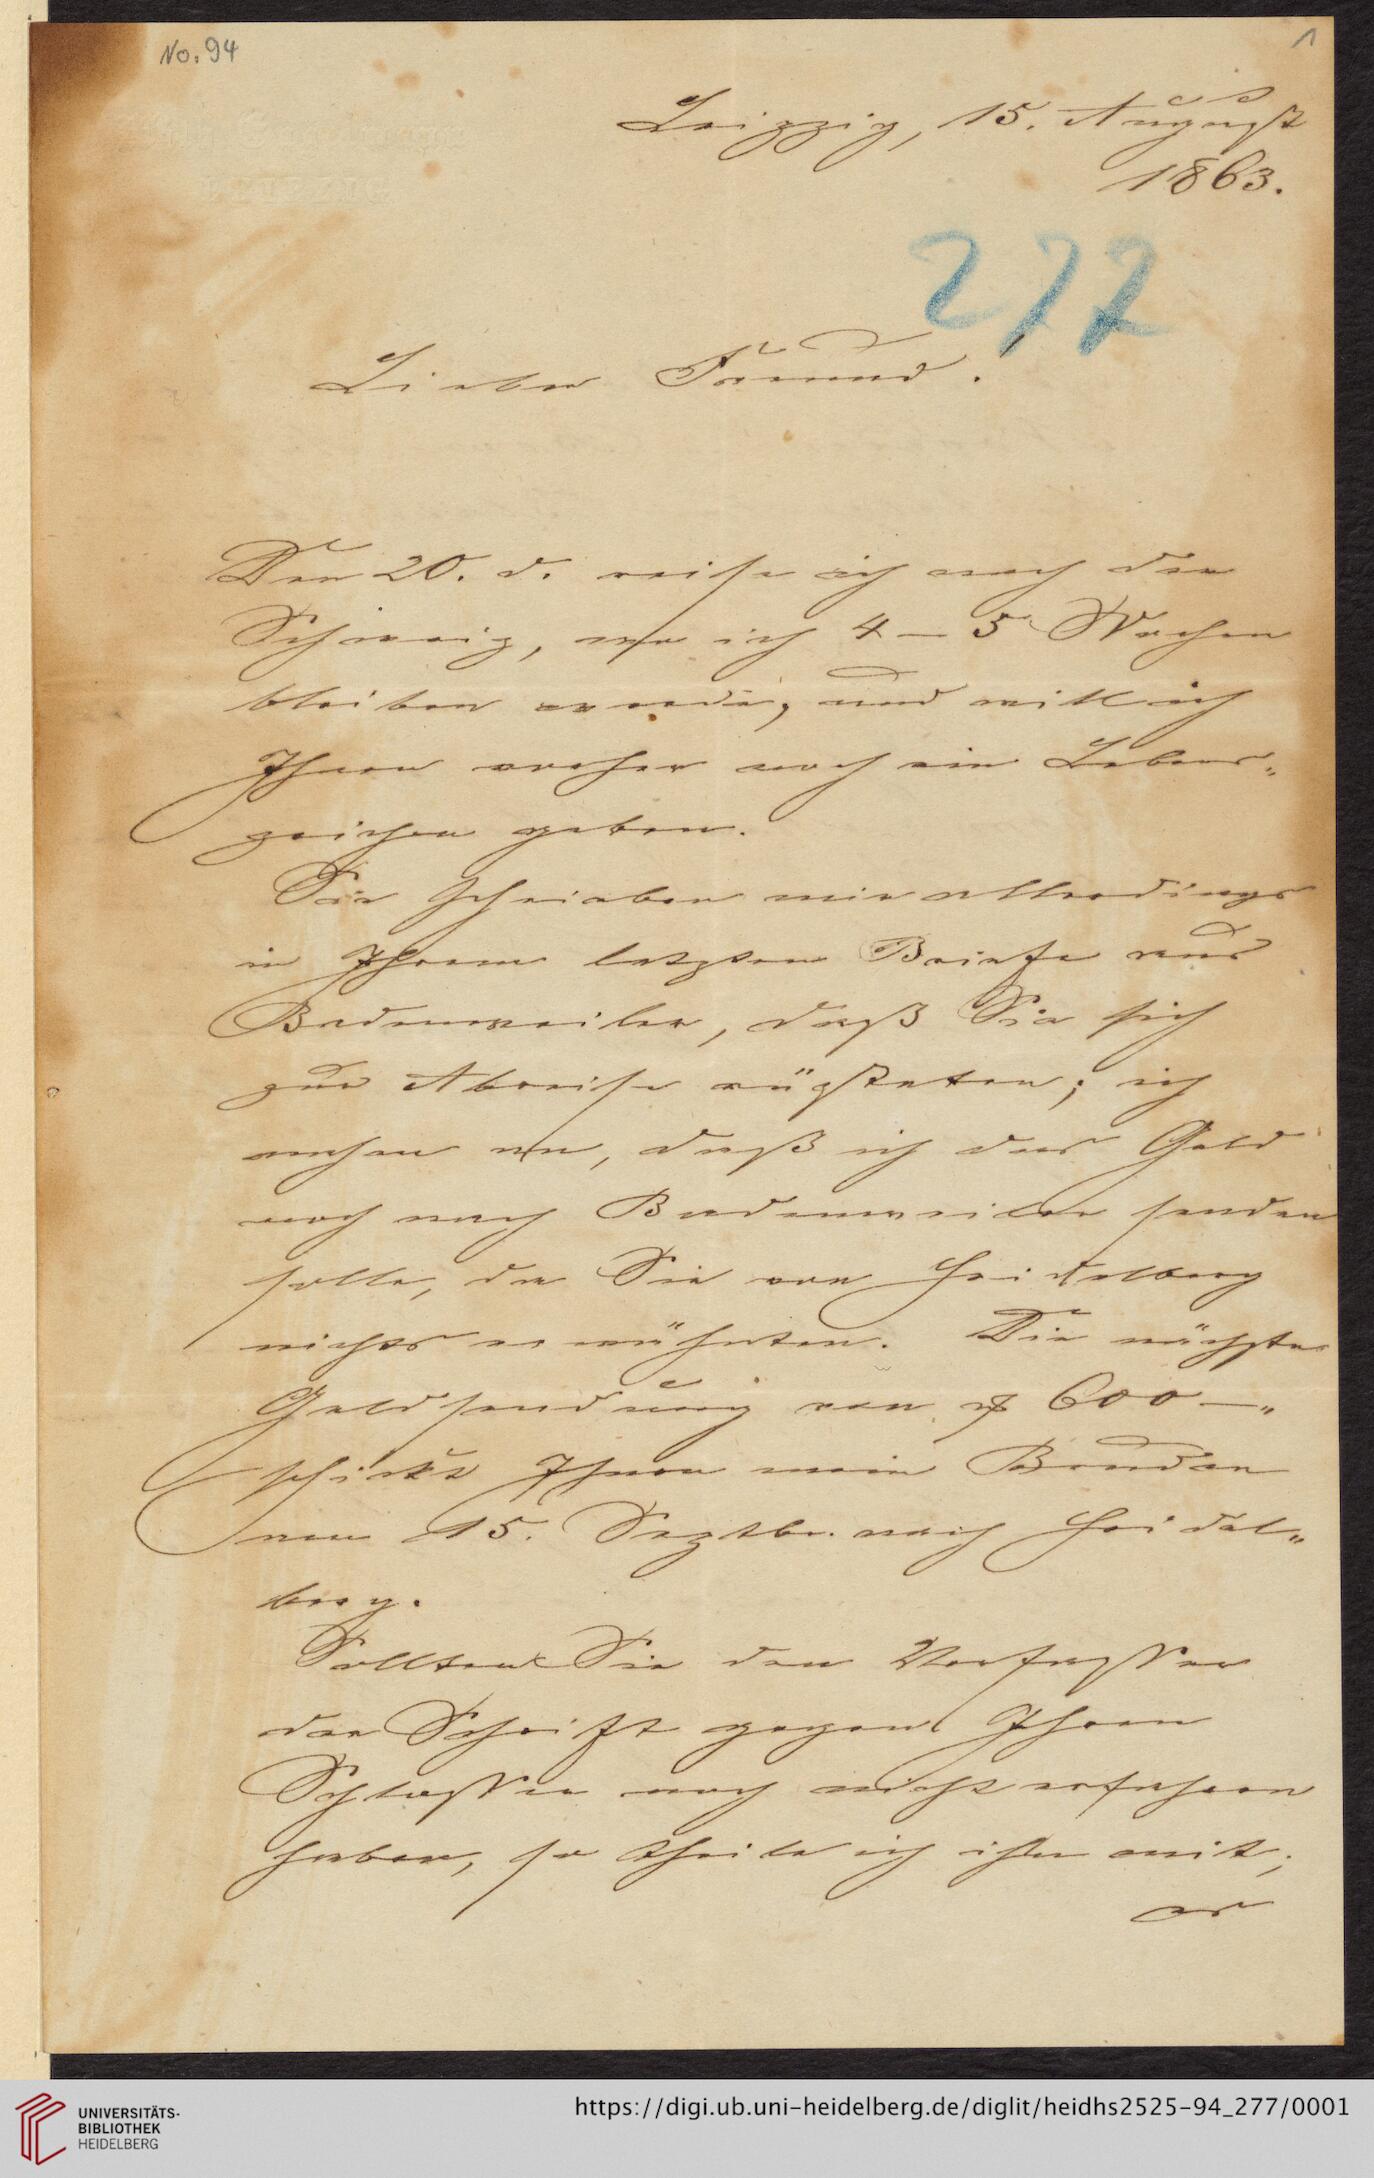 No. 94
1
Leipzig, 15. August
1863.
277
Lieber Freund!
Den 20. d. reise ich nach der
Schweiz, wo ich 4 – 5 Wochen
bleiben werde, und will ich
Ihnen vorher noch ein Lebens„
zeichen geben.
Sie schrieben mir allerdings
in Ihrem letzten Briefe aus
Badenweiler, daß Sie sich
zur Abreise rüsteten; ich
nahm an, daß ich das Geld
noch nach Badenweiler senden
solle, da Sie von Heidelberg
nichts erwähnten. Die nächste
Geldsendung von 600 –„
schickt Ihnen mein Bruder
am 15. Septbr. nach Heidel„
berg.
Sollten Sie den Verfasser
der Schrift gegen Ihren
Schlosser noch nicht erfahren
haben, so theile ich ihn mit;
es
UNIVERSITÄTS-
BIBLIOTHEK
HEIDELBERG
https://digi.ub.uni-heidelberg.de/diglit/heidhs2525-94_277/0001